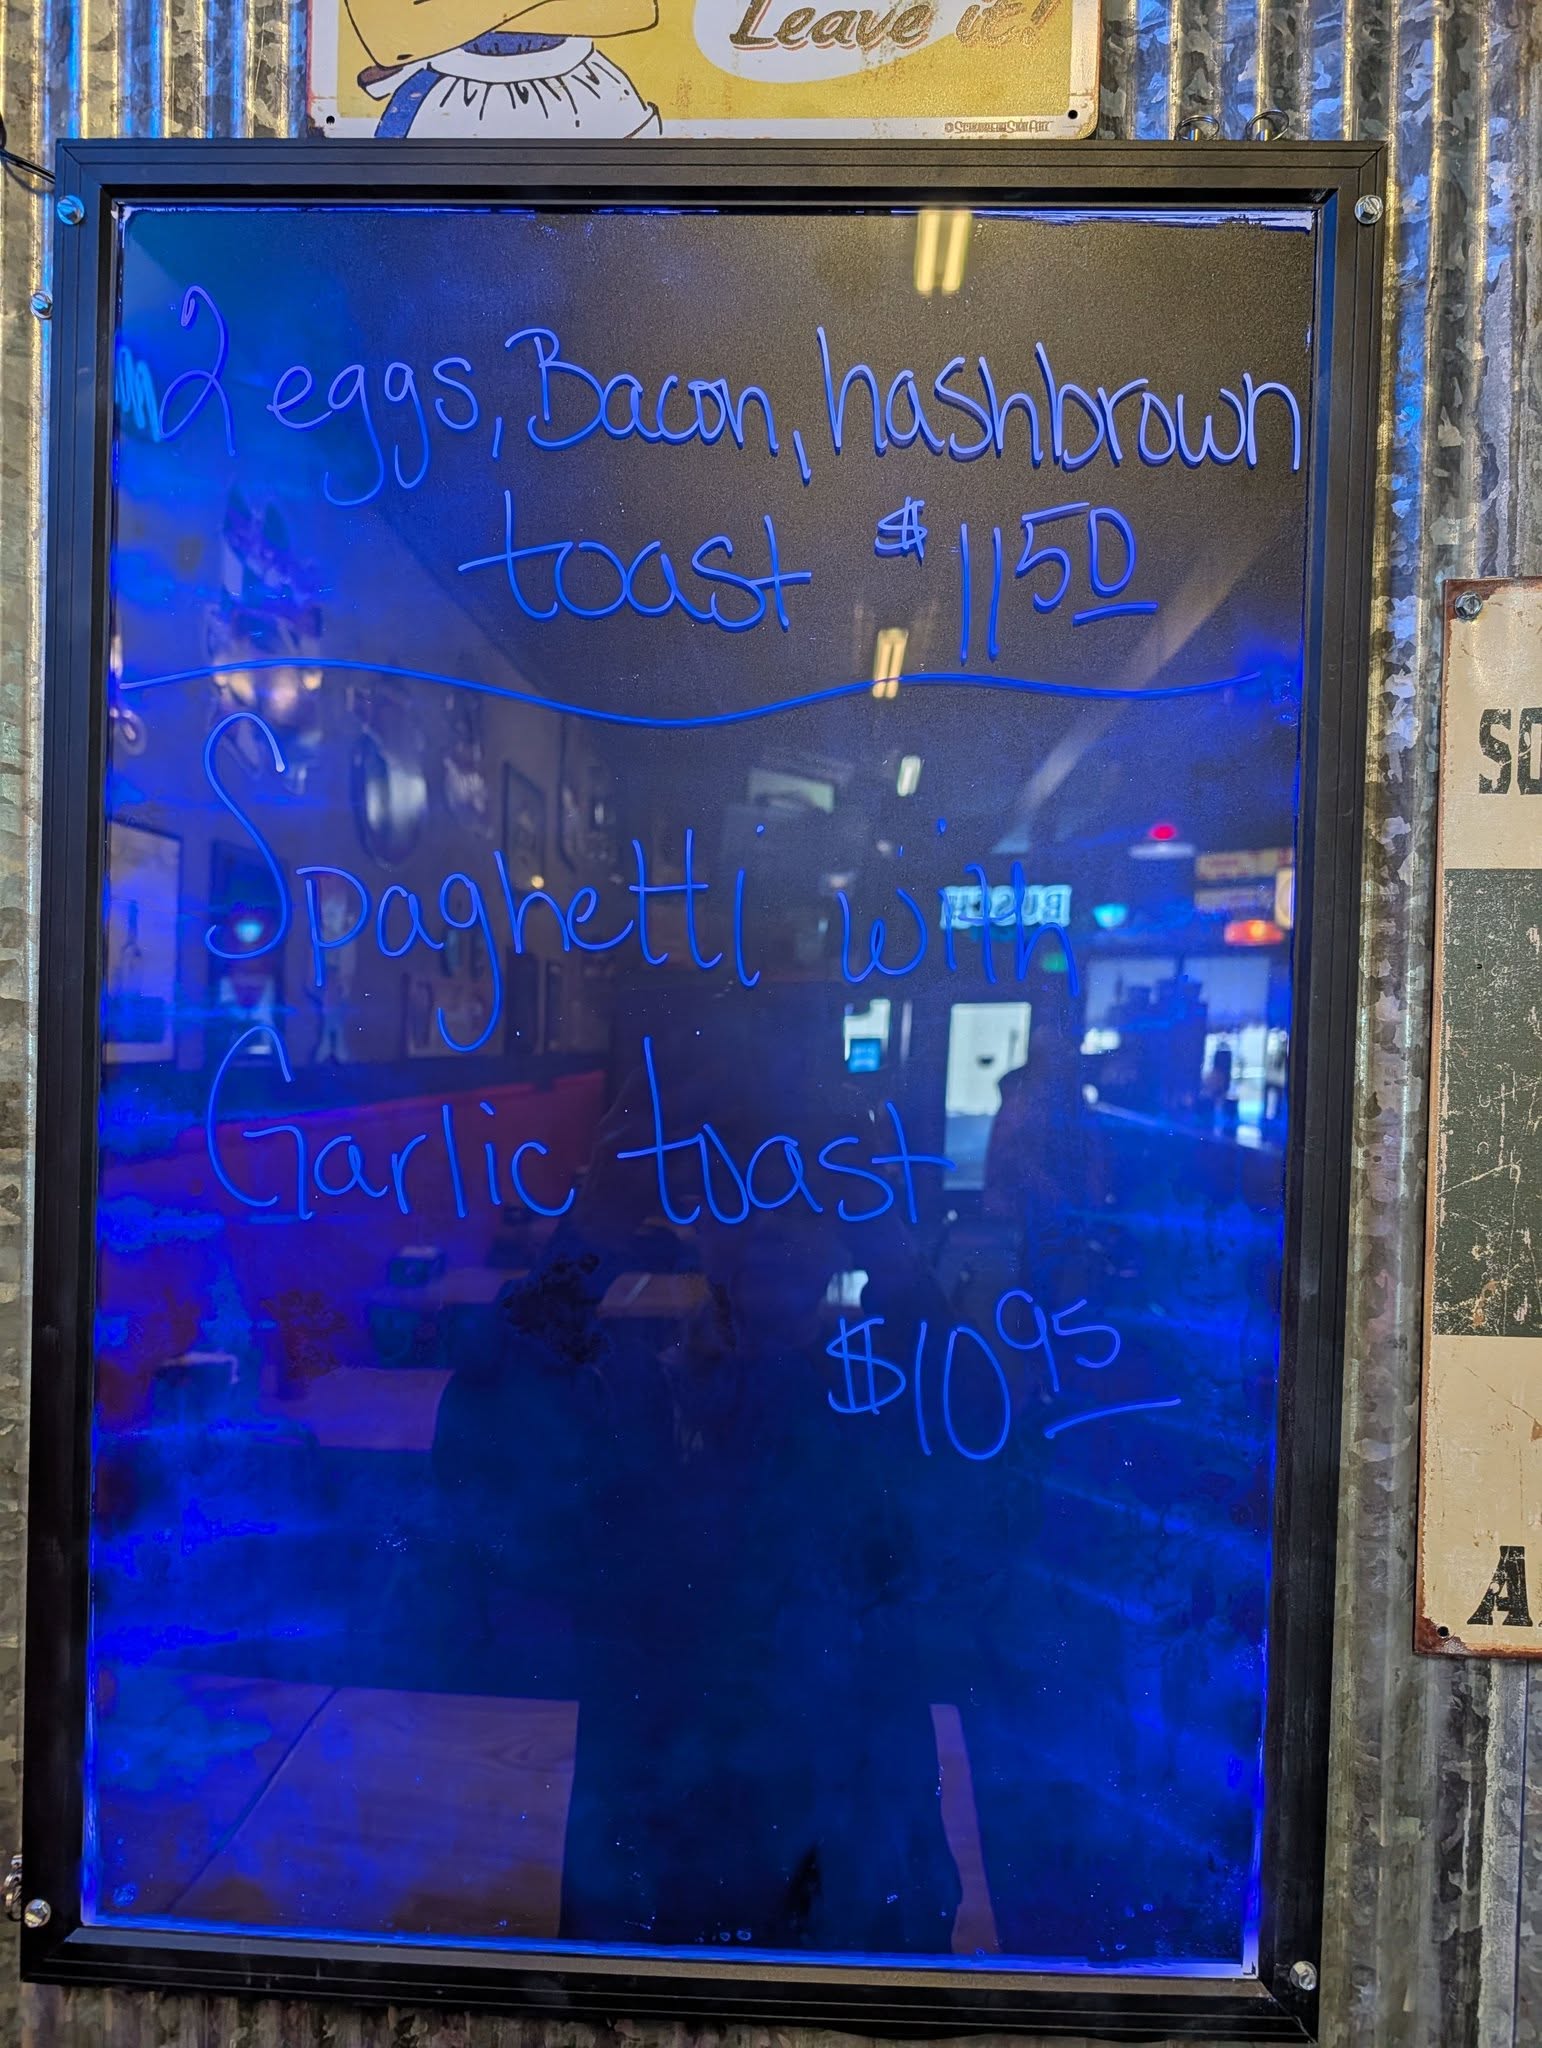 Leave it!
©SCHONBERG SIGN ART
2 eggs, Bacon, hashbrown
toast $11 50
Spaghetti with
Garlic toast
$10 95
BUSCH
SO
A